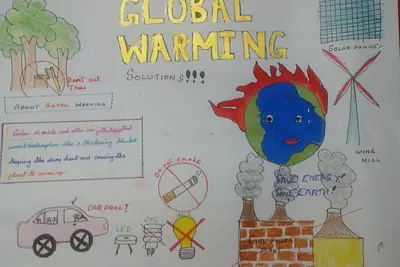 GLOBAL
WARMING
SOLUTIONS!!!
SOLAR PANNEL
DON'T CUT
TREES
ABOUT GLOBAL WARMING
Carbon dioxide and other air
like a thickening blanket
trapping the suns heat and causing the
planet to warm up.
DO NOT SMOKE
WIND
MILL
SAVE ENERGY!
SAVE EARTH!
CAR POOL!
LED
CFL
COAL POWER
PLANT